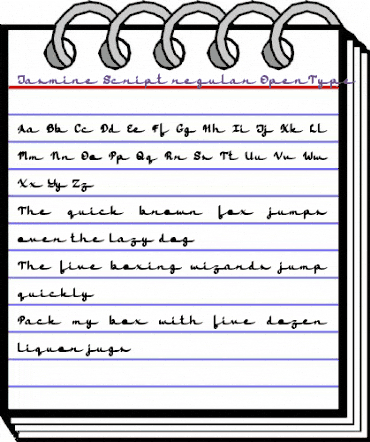 Jasmine Script regular OpenType
Aa Bb Cc Dd Ee Ff Gg Hh Ii Jj Kk Ll
Mm Nn Oo Pp Qq Rr Ss Tt Uu Vv Ww
Xx Yy Zz
The quick brown fox jumps
over the lazy dog
The five boxing wizards jump
quickly
Pack my box with five dozen
liquor jugs